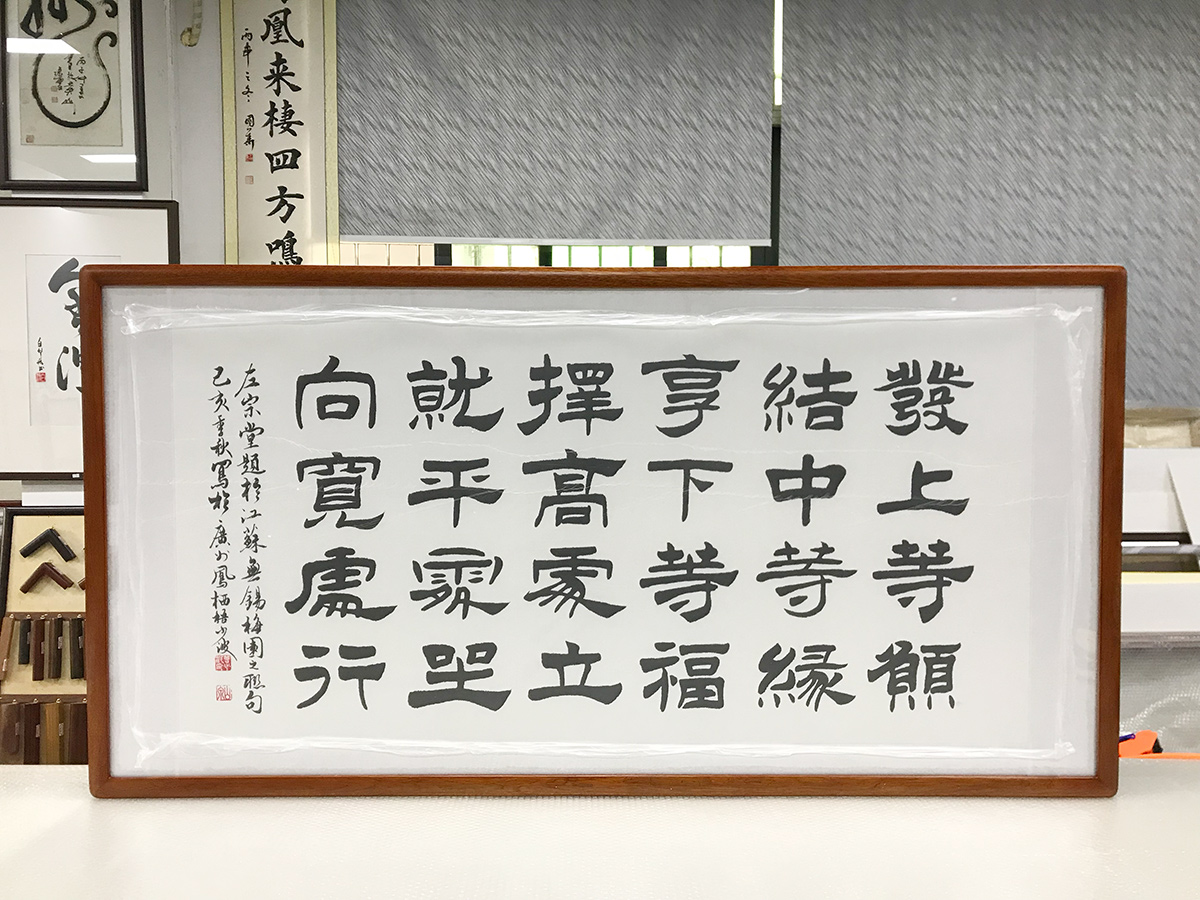 發上等願
結中等緣
享下等福
擇高處立
就平處坐
向寬處行
左宗堂題於江蘇無錫梅園之聯句
己亥季秋寫於廣州鳳栖梧小波
凰来棲四方鳴